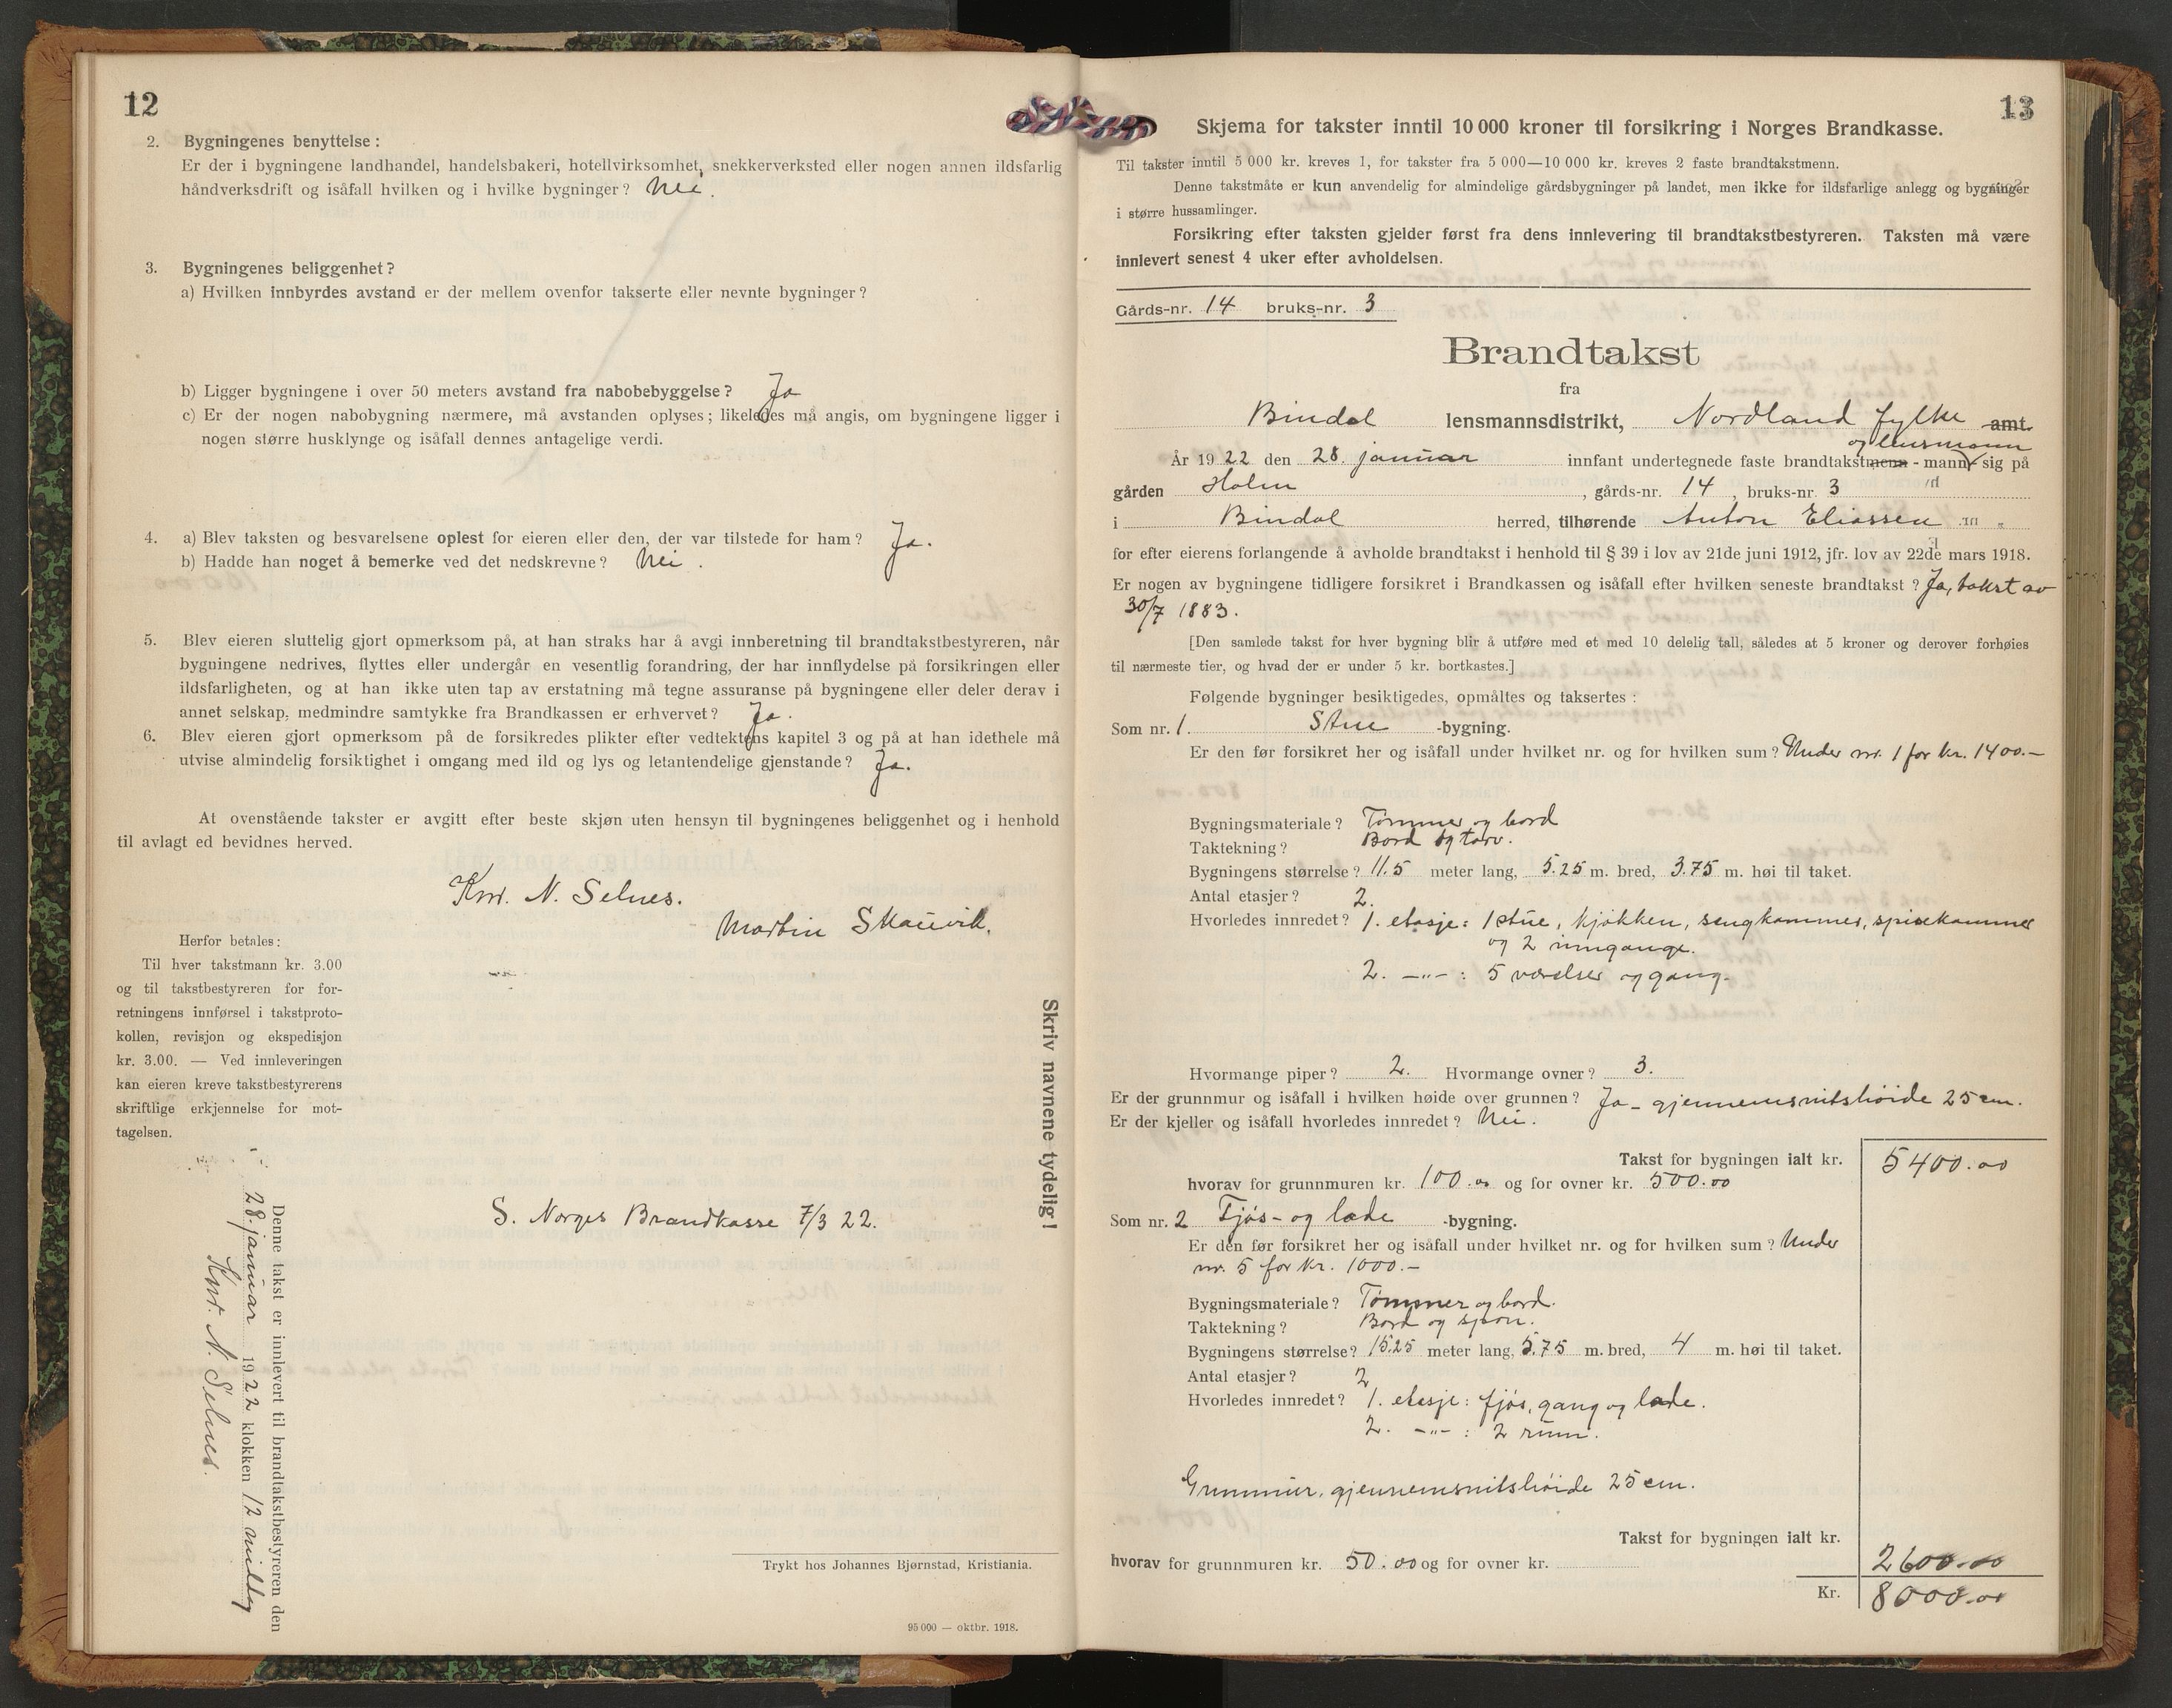 12
2. Bygningenes benyttelse :
Er der i bygningene landhandel, handelsbakeri, hotellvirksomhet, snekkerverksted eller nogen annen ildsfarlig
håndverksdrift og isåfall hvilken og i hvilke bygninger? Nei.
3. Bygningenes beliggenhet?
a) Hvilken innbyrdes avstand er der mellem ovenfor takserte eller nevnte bygninger?
b) Ligger bygningene i over 50 meters avstand fra nabobebyggelse? Ja
c) Er der nogen nabobygning nærmere, må avstanden oplyses; likeledes må angis, om bygningene ligger i
nogen større husklynge og isåfall dennes antagelige verdi.
4. a) Blev taksten og besvarelsene oplest for eieren eller den, der var tilstede for ham? Ja.
b) Hadde han noget å bemerke ved det nedskrevne? Nei.
5. Blev eieren sluttelig gjort opmerksom på, at han straks har å avgi innberetning til brandtakstbestyreren, når
bygningene nedrives, flyttes eller undergår en vesentlig forandring, der har innflydelse på forsikringen eller
ildsfarligheten, og at han ikke uten tap av erstatning må tegne assuranse på bygningene eller deler derav i
annet selskap, medmindre samtykke fra Brandkassen er erhvervet? Ja.
6. Blev eieren gjort opmerksom på de forsikredes plikter efter vedtektens kapitel 3 og på at han idethele må
utvise almindelig forsiktighet i omgang med ild og lys og letantendelige gjenstande? Ja.
At ovenstående takster er avgitt efter beste skjøn uten hensyn til bygningenes beliggenhet og i henhold
til avlagt ed bevidnes herved.
Knr. N. Selnes.
Martin Skauvik.
Herfor betales:
Til hver takstmann kr. 3.00
og til takstbestyreren for for-
retningens innførsel i takstproto-
kollen, revisjon og ekspedisjon
kr. 3.00. — Ved innleveringen
kan eieren kreve takstbestyrerens
skriftlige erkjennelse for mot-
tagelsen.
Skriv navnene tydelig!
Denne takst er innlevert til brandtakstbestyreren den
28. januar 1922 klokken 12 middag
Knr. N. Selnes.
S. Norges Brandkasse 7/3 22.
Trykt hos Johannes Bjørnstad, Kristiania.
95 000 — oktbr. 1918.
13
Skjema for takster inntil 10 000 kroner til forsikring i Norges Brandkasse.
Til takster inntil 5 000 kr. kreves 1, for takster fra 5 000—10 000 kr. kreves 2 faste brandtakstmenn.
Denne takstmåte er kun anvendelig for almindelige gårdsbygninger på landet, men ikke for ildsfarlige anlegg og bygninger
i større hussamlinger.
Forsikring efter taksten gjelder først fra dens innlevering til brandtakstbestyreren. Taksten må være
innlevert senest 4 uker efter avholdelsen.
Gårds-nr. 14 bruks-nr. 3
Brandtakst
fra
Bindal lensmannsdistrikt, Nordland fylke amt.
og lensmann
År 1922 den 28. januar innfant undertegnede faste brandtakstmenn - mann sig på
gården Holm, gårds-nr. 14, bruks-nr. 3
i Bindal herred, tilhørende Anton Eliassen
for efter eierens forlangende å avholde brandtakst i henhold til § 39 i lov av 21de juni 1912, jfr. lov av 22de mars 1918.
Er nogen av bygningene tidligere forsikret i Brandkassen og isåfall efter hvilken seneste brandtakst? Ja, takst av
30/7 1883.
[Den samlede takst for hver bygning blir å utføre med et med 10 delelig tall, således at 5 kroner og derover forhøies
til nærmeste tier, og hvad der er under 5 kr. bortkastes.]
Følgende bygninger besiktigedes, opmåltes og taksertes :
Som nr. 1. Stue -bygning.
Er den før forsikret her og isåfall under hvilket nr. og for hvilken sum? Under nr. 1 for kr. 1400.—
Bygningsmateriale? Tømmer og bord
Taktekning? Bord og torv.
Bygningens størrelse? 11.5 meter lang, 5.25 m. bred, 3.75 m. høi til taket.
Antal etasjer? 2.
Hvorledes innredet? 1. etasje: 1 stue, kjøkken, sengkammer, spisekammer
og 2 inngange.
2. —"— : 5 værelser og gang.
Hvormange piper? 2. Hvormange ovner? 3.
Er der grunnmur og isåfall i hvilken høide over grunnen? Ja – gjennemsnitshøide 25 cm.
Er der kjeller og isåfall hvorledes innredet? Nei.
Takst for bygningen ialt kr. 5400.00
hvorav for grunnmuren kr. 100.00 og for ovner kr. 500.00
Som nr. 2 Fjøs- og lade -bygning.
Er den før forsikret her og isåfall under hvilket nr. og for hvilken sum? Under
nr. 5 for kr. 1000.—
Bygningsmateriale? Tømmer og bord.
Taktekning? Bord og spon.
Bygningens størrelse? 15.25 meter lang, 5.75 m. bred, 4 m. høi til taket.
Antal etasjer? 2
Hvorledes innredet? 1. etasje: fjøs, gang og lade.
2. —"— : 2 rum.
Grunnmur, gjennemsnitshøide 25 cm.
Takst for bygningen ialt kr. 2600.00
hvorav for grunnmuren kr. 50.00 og for ovner kr.
Kr. 8000.00